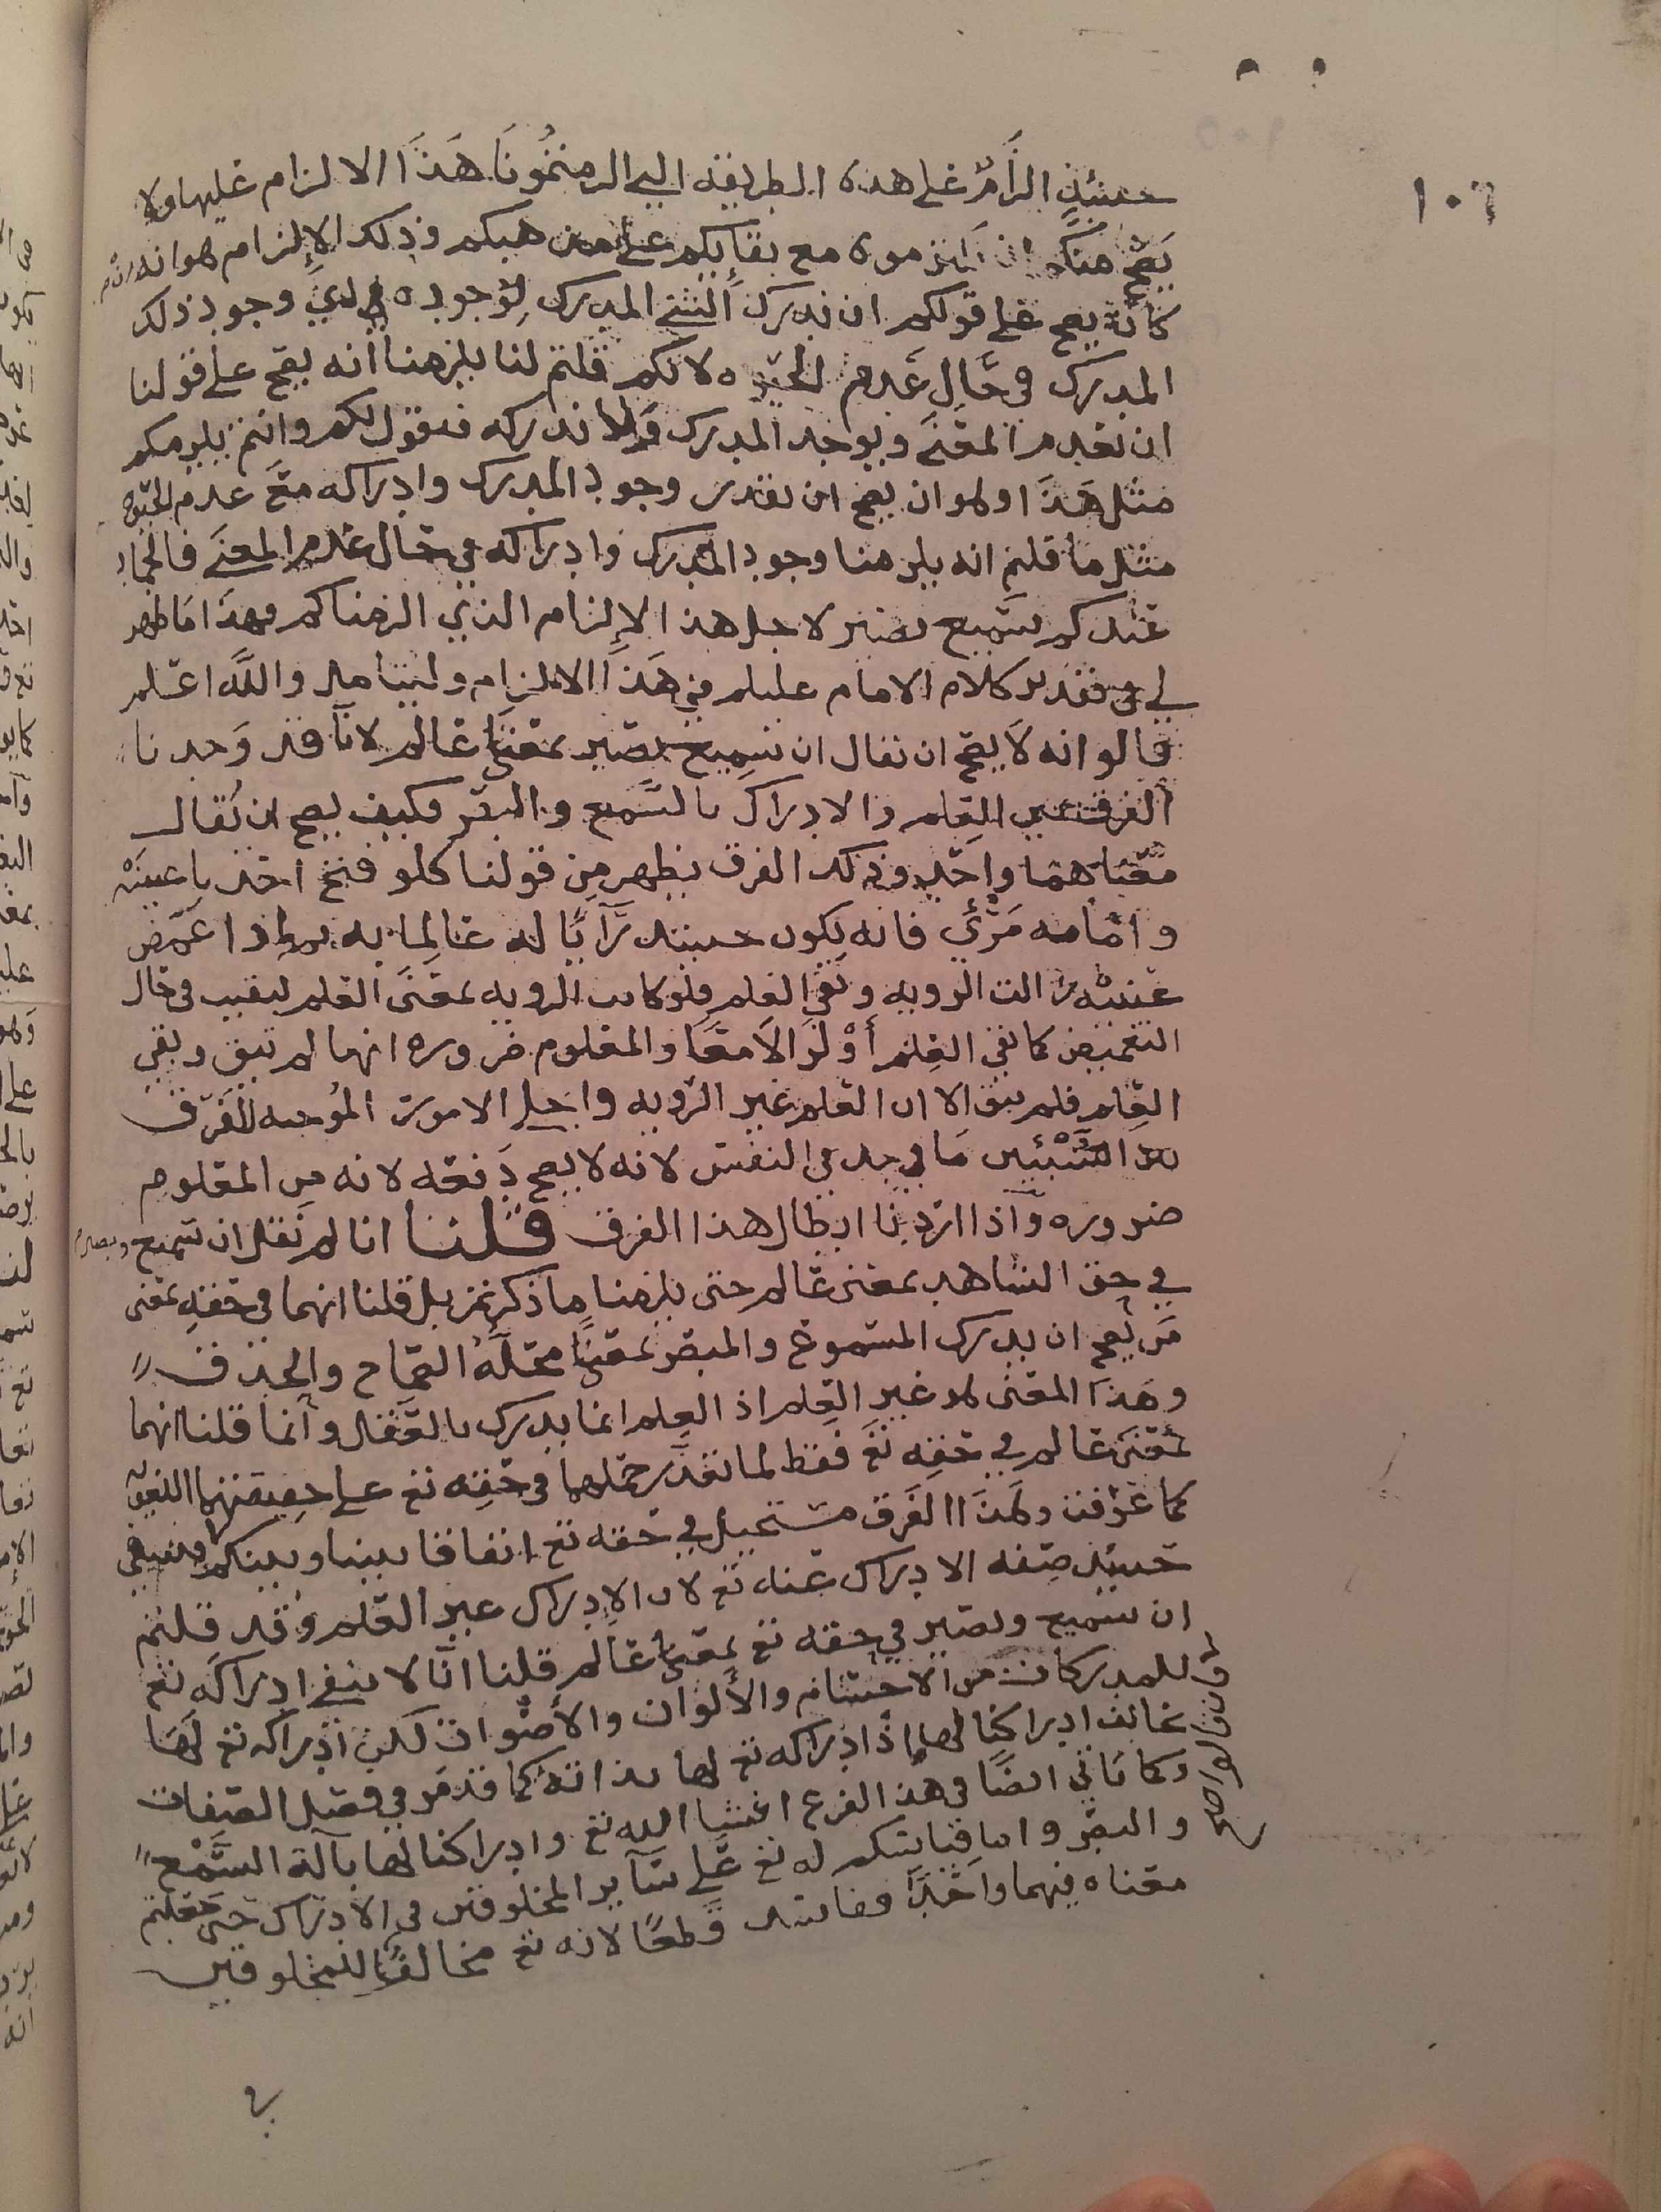 ١٠٦
حينئذٍ الزَامٌ على هذه الطريقه التي الزمتمُونَا هَذَا الالزام عليها ولا
يَصح منكم ان تلزموه مع بقائكم على مذهبكم وذلك الإلزام هو انه
كانَ يصح على قولكم ان ندرك الشي المدرك لِوُجوده وجود ذلك
المدرك في حَالِ عَدم الحيوه لانكم قلتم لنا يلزمنا انه يصح على قولنا
ان نعدم المعنَى ويوجد المدرك ولا ندركه فنقول لكم وانتم يلزمكم
مثل هَذَا وهو ان يصح ان نقدر وجود المدرك وادراكه مَعَ عدم الحيوه
مثل ما قلتم انه يلزمنا وجود المدرك وادراكه في حَال عدم المعنَى
عندكم سَميع بصير لاجل هذا الإلزام الذي الزمناكم وهذا مَا ظهر
لي في تقدير كلام الامام علىلم في هَذَا الالزام وليتامل واللَّه اعلم
قالوا انه لاَ يصح ان يقال ان سَميع بصير بمعنَى عَالم لانَّا قد وَجدنا
الفرق بين العِلم والادراك بالسَّمع والبصَر فكيف يصح ان يُقال
مَعناهمَا واحد وذلك الفرق يظهر مِن قولنا كلو فتح احد يا عينَيْه
وامَامه مَرْئِي فانه يكون حينئذ رَآيًا له عَالِمًا به فاذا غمّض
عَينيْه زالت الرويه وبَقي العِلم فلو كانت الرويه بمعنَى العلم لبقيت في حال
التغميض كما بقي العِلم أوْ لزالاَ مَعًا والمعلوم ضروره انها لم تبق وبقي
العِلم فلم يبق الا ان العلم غير الرويه واجلى الامور المُوجبه للفَرق
بين الشَّيْئين مَا يوجد في النفس لانه لا يصح دَفعه لانه من المعلوم
ضروره وَاذا ارَدنا ابطال هذا الفرق قلنا انا لم نَقل ان سَميع وبصير
في حق الشاهد بمعنى عَالم حتى يلزمنا ما ذكرتم بل قلنا انهما في حقه بمعنى
مَن يصح ان يدرك المسموع والمبصَر بمعنىً محلّهُ الصّماخ والحدق
وهَذَا المعنى هو غير العِلم اذ العِلم انما يدرك بالعَقل وَانما قلنا انهما
بمعنَى عَالم في حَقه تعَ فقط لما تعَذّر حملهما في حقه تع على حقيقتهما اللغويه
كما عَرفت وهَذَا الفَرق مستحيل في حقه تع اتفاقا بيننا وبينكم فينبغي
حَينئذ صِفه الادراك عنه تع لان الإدراك غير العلم وقد قلتم
ان سَميع وبصير في حقه تع بمعنىَ عَالم قلنا انَّا لا ننفي ادراكَه تع
للمدركات من الاجسام والألوان والأصْوات لكن ادْراكه تع لَهَا
يخالف ادراكنا لها اذ ادراكه تع لها بذاته كما قد مَر في فصل الصفات
وكما يَأتي ايضًا في هذا الفرع انشا الله تع وادراكنا لها بآلة السَّمْع
والبصَر واما قياسكم له تع عَلى سَاير المخلوقين في الادراك حتى جعلتم
معناه فيهما واحدًا ففاسد قطعًا لانه تع مخالف للمخلوقين